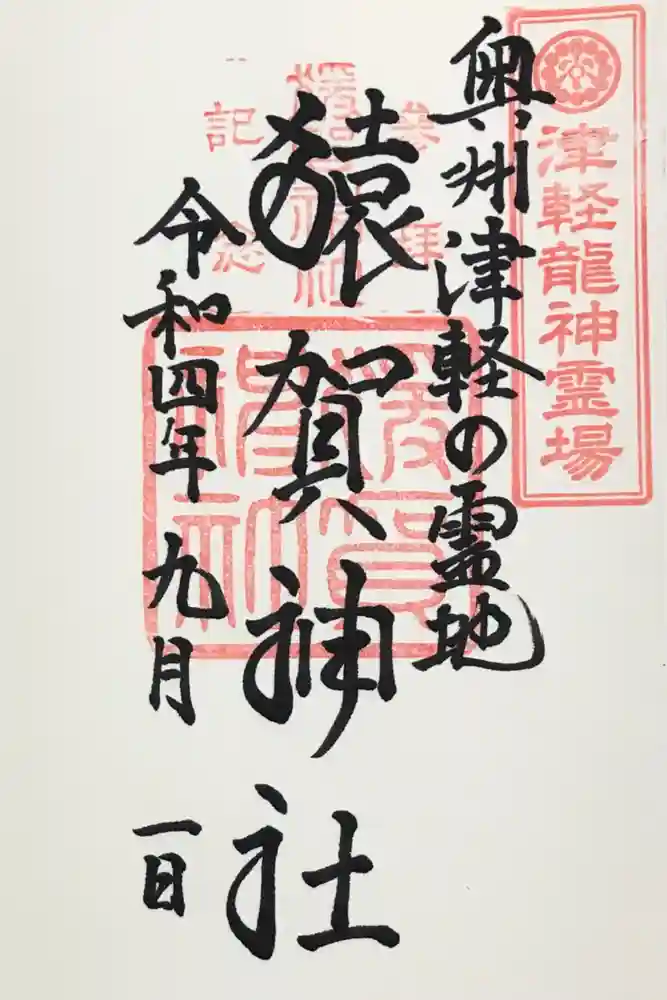 津軽龍神霊場
奥州津軽の霊地
参拝
猿賀神社
記念
令和四年九月一日